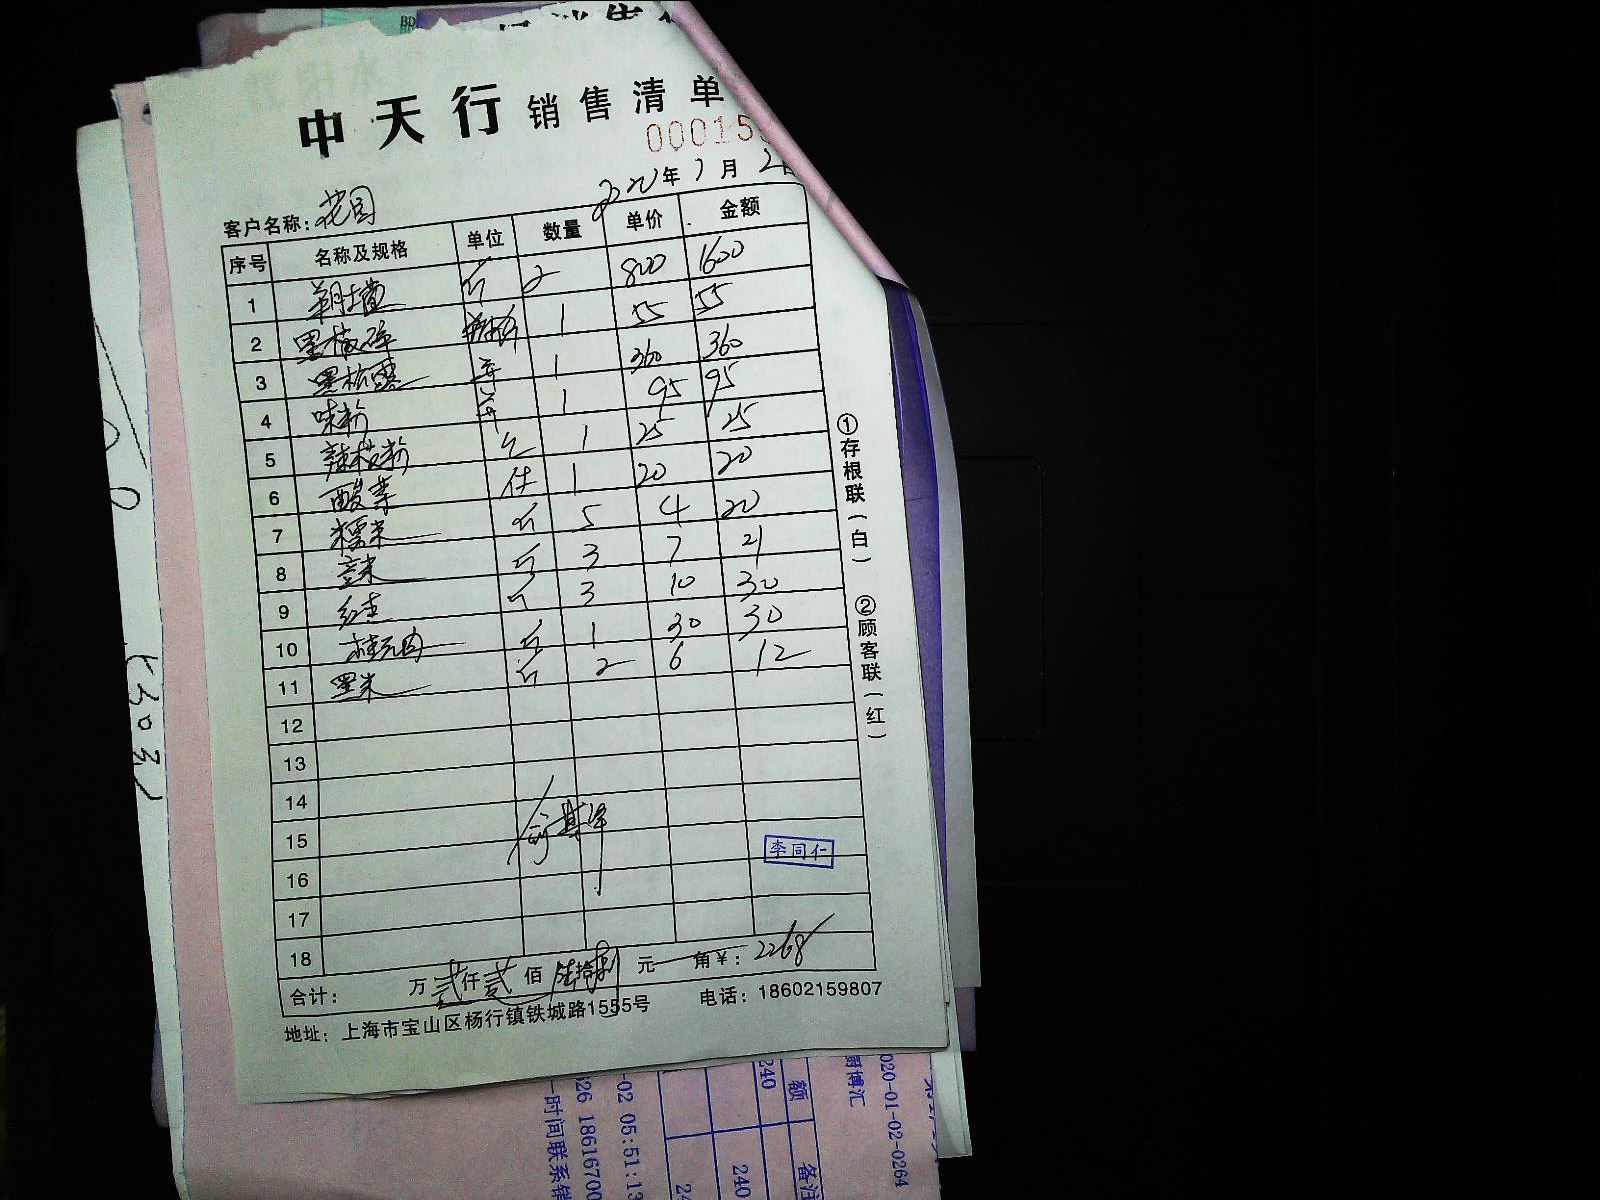 中天行 销售清单
00015
客户名称: 花园 2020年1月2日
序号 名称及规格 单位 数量 单价 金额
1 2 800 1600
2 黑椒碎 1 55 55
3 黑椒露 1 360 360
4 味粉 1 95 95
5 辣椒粉 1 25 25
6 酸菜 1 20 20
7 糯米 5 4 20
8 3 7 21
9 红枣 3 10 30
10 桂元肉 1 30 30
11 黑米 2 6 12
12
13
14
15
16
17
18
李同仁
合计: 万贰仟贰佰陆拾捌元 角¥: 2268
地址: 上海市宝山区杨行镇铁城路1555号 电话: 18602159807
①存根联(白) ②顾客联(红)
(303)
240
额
240
备注
厨博汇
020-01-02-0264
-02 05:51:13
326 18616700
一时间联系销